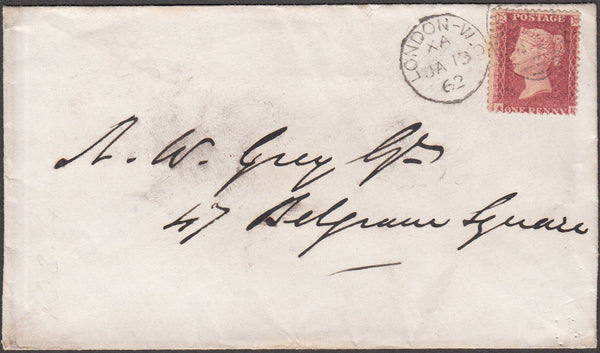 LONDON-W.C
XA
JA 13
62
POSTAGE
ONE PENNY
A. W. Grey Esqr
47 Belgrave Square